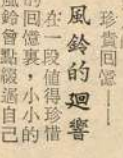 珍貴回憶——
風鈴的迴響
在一段值得珍惜
的回憶裏，小小的
風鈴曾點綴過自己